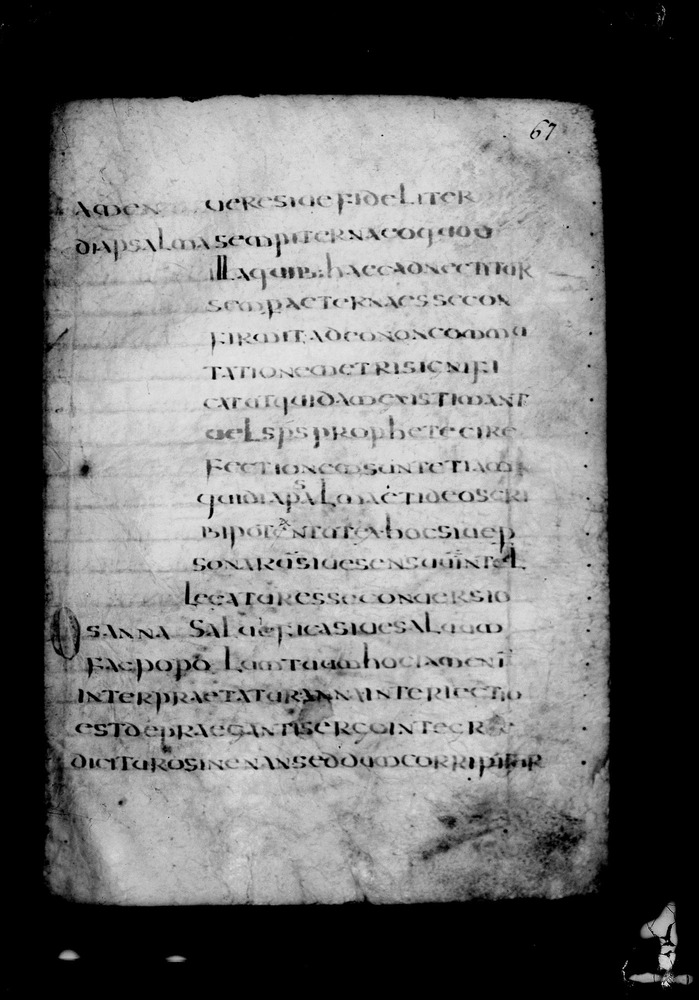 67
amen uere siue fideliter
diapsalma sempiterna eo quod
illa quib: haec adnectitur
sempaeternaesse con
firmit adeo non commu
tationem metri signifi
cat ut quidam existimant
uel sps prophetecire
fectionem sunt etiam
qui diapsalma et ideo scri
bi potant ut ex hoc siue p
sonarũ siue sensuũ intel
legatur esse conuersio
Osanna saluifica siue saluum
fac popõ lum tuum hoc iam enĩ
interpraetatur anna interiectio
est depraecantis ergo integre
dicitur osinenanseddum corripitur
1